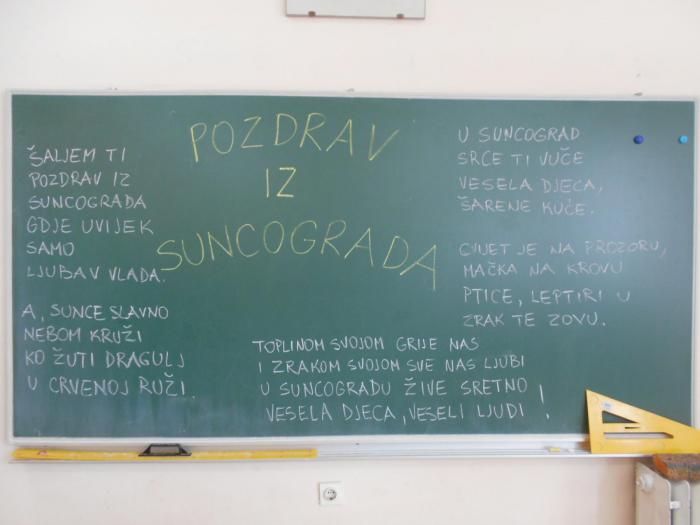 POZDRAV
IZ
SUNCOGRADA
ŠALJEM TI
POZDRAV IZ
SUNCOGRADA
GDJE UVIJEK
SAMO
LJUBAV VLADA.
A, SUNCE SLAVNO
NEBOM KRUŽI
KO ŽUTI DRAGULJ
U CRVENOJ RUŽI.
TOPLINOM SVOJOM GRIJE NAS
I ZRAKOM SVOJOM SVE NAS LJUBI
U SUNCOGRADU ŽIVE SRETNO
VESELA DJECA, VESELI LJUDI!
U SUNCOGRAD
SRCE TI VUČE
VESELA DJECA,
ŠARENE KUĆE.
CVIJET JE NA PROZORU,
MAČKA NA KROVU
PTICE, LEPTIRI U
ZRAK TE ZOVU.